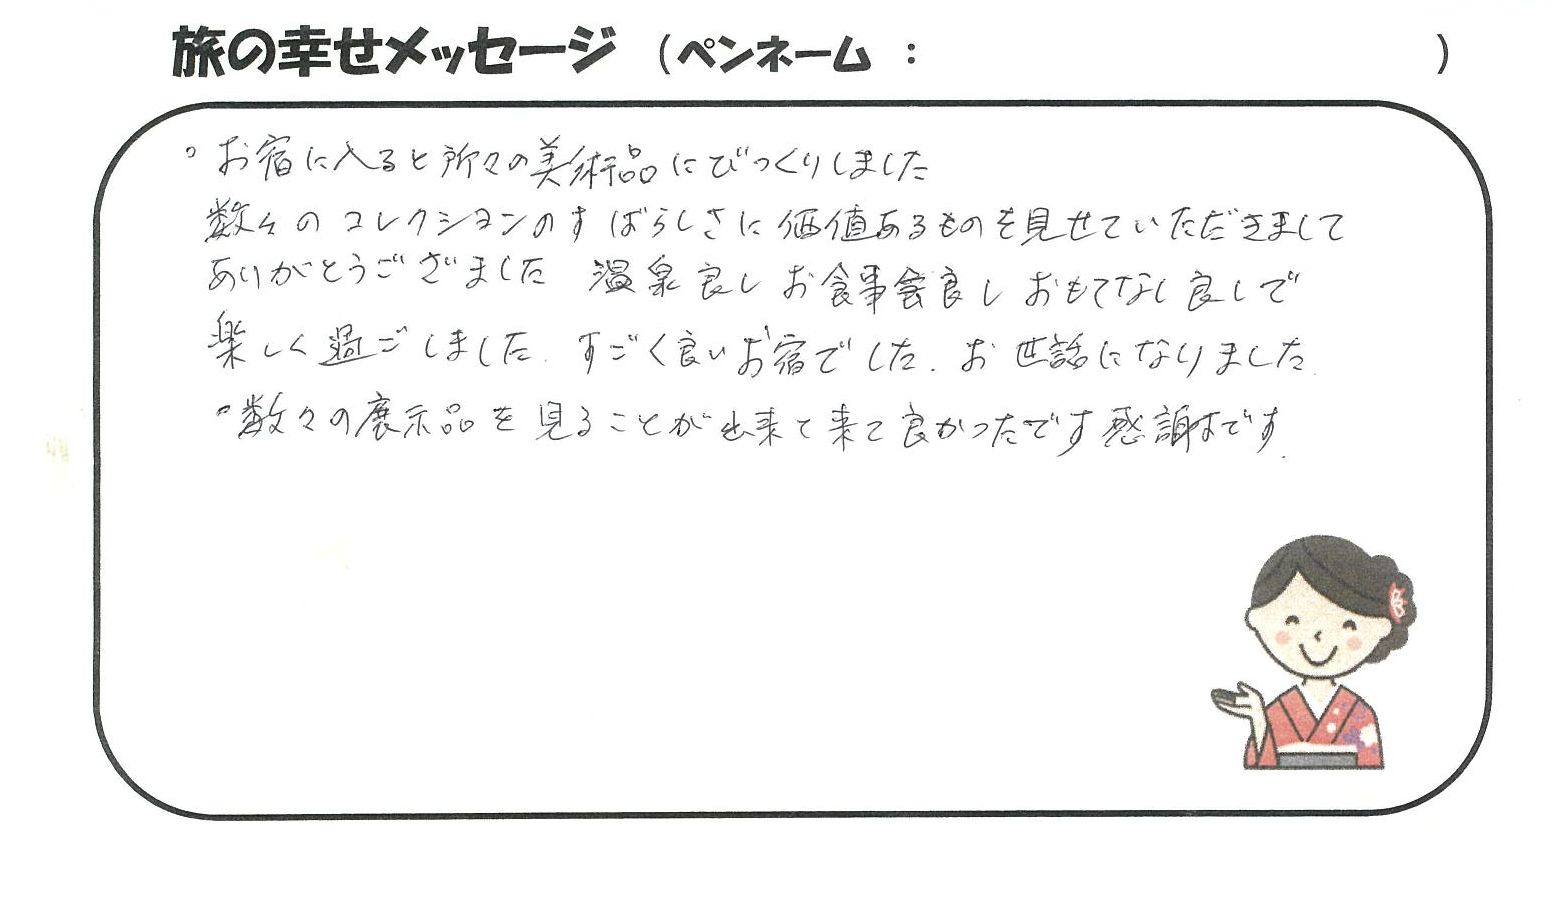 旅の幸せメッセージ （ペンネーム ： ）
。お宿に入ると所々の美術品にびっくりしました
数々のコレクションのすばらしさに価値あるものを見せていただきまして
ありがとうございました 温泉良し お食事会良し おもてなし良しで
楽しく過ごしました. すごく良いお宿でした. お世話になりました.
。数々の展示品を見ることが出来て来て良かったです感謝です.